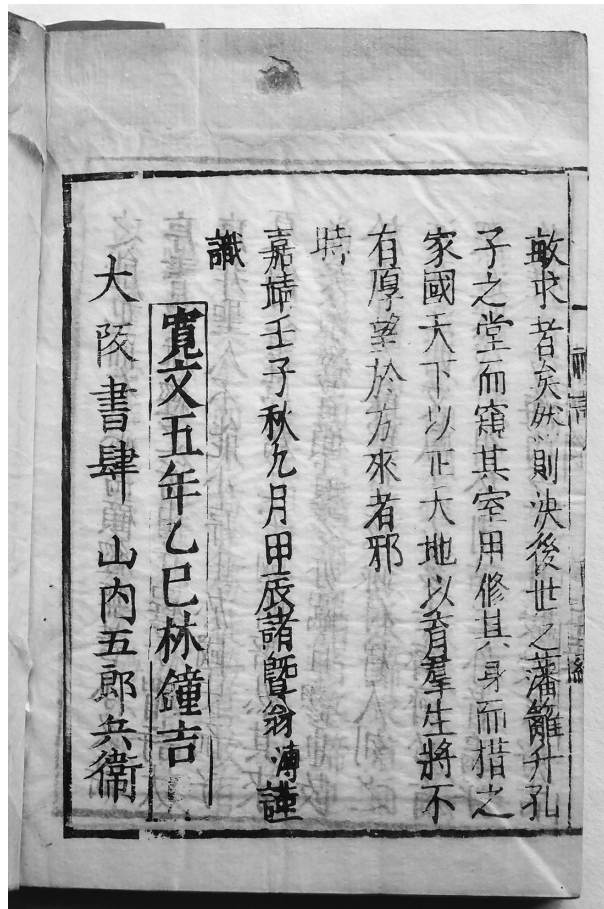 敏求者矣然則決後世之藩籬升孔
子之堂而窺其室用修其身而措之
家國天下以正大地以育羣生將不
有厚望於方來者邪
時
嘉靖壬子秋九月甲辰諸暨翁溥謹
識
寬文五年乙巳林鐘吉
大阪書肆 山内五郎兵衞